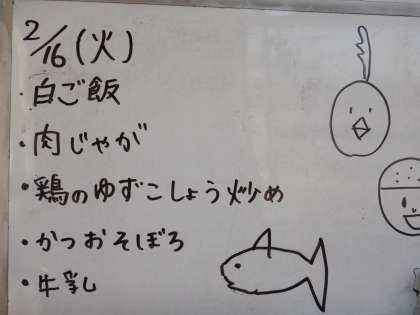 2/16(火)
・白ご飯
・肉じゃが
・鶏のゆずこしょう炒め
・かつおそぼろ
・牛乳